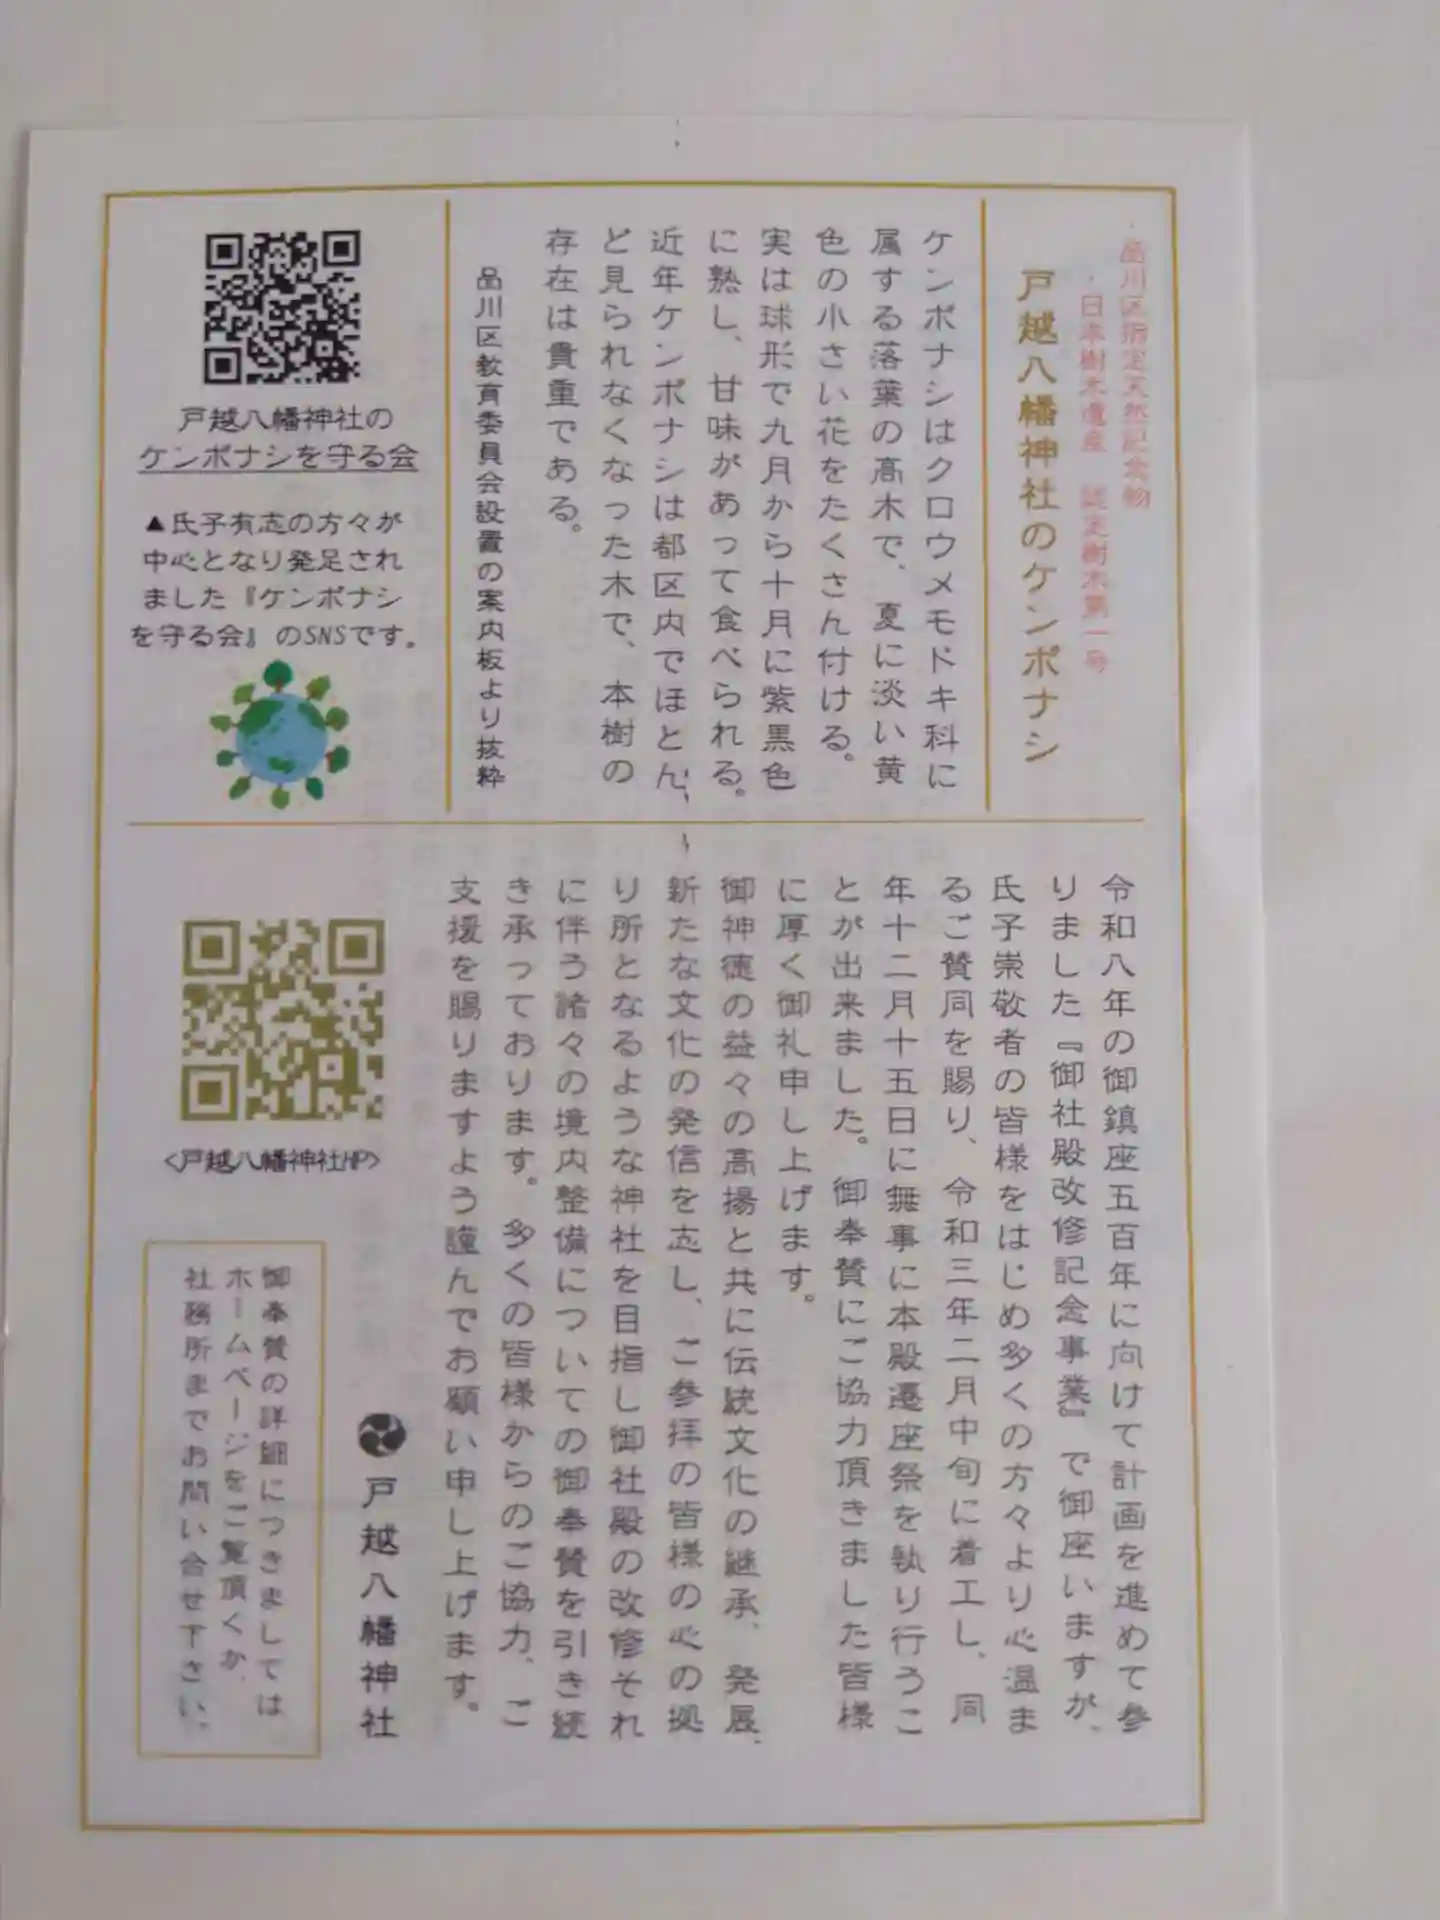 ・品川区指定天然記念物
・日本樹木遺産 認定樹木第一号
戸越八幡神社のケンポナシ
ケンポナシはクロウメモドキ科に
属する落葉の高木で、夏に淡い黄
色の小さい花をたくさん付ける。
実は球形で九月から十月に紫黒色
に熟し、甘味があって食べられる。
近年ケンポナシは都区内でほとん
ど見られなくなった木で、本樹の
存在は貴重である。
品川区教育委員会設置の案内板より抜粋
戸越八幡神社の
ケンポナシを守る会
▲氏子有志の方々が
中心となり発足され
ました『ケンポナシ
を守る会』のSNSです。
令和八年の御鎮座五百年に向けて計画を進めて参
りました『御社殿改修記念事業』で御座いますが、
氏子崇敬者の皆様をはじめ多くの方々より心温ま
るご賛同を賜り、令和三年二月中旬に着工し、同
年十二月十五日に無事に本殿遷座祭を執り行うこ
とが出来ました。御奉賛にご協力頂きました皆様
に厚く御礼申し上げます。
御神徳の益々の高揚と共に伝統文化の継承、発展、
新たな文化の発信を志し、ご参拝の皆様の心の拠
り所となるような神社を目指し御社殿の改修それ
に伴う諸々の境内整備についての御奉賛を引き続
き承っております。多くの皆様からのご協力、ご
支援を賜りますよう謹んでお願い申し上げます。
戸越八幡神社
<戸越八幡神社HP>
御奉賛の詳細につきましては、
ホームページをご覧頂くか、
社務所までお問い合せ下さい。